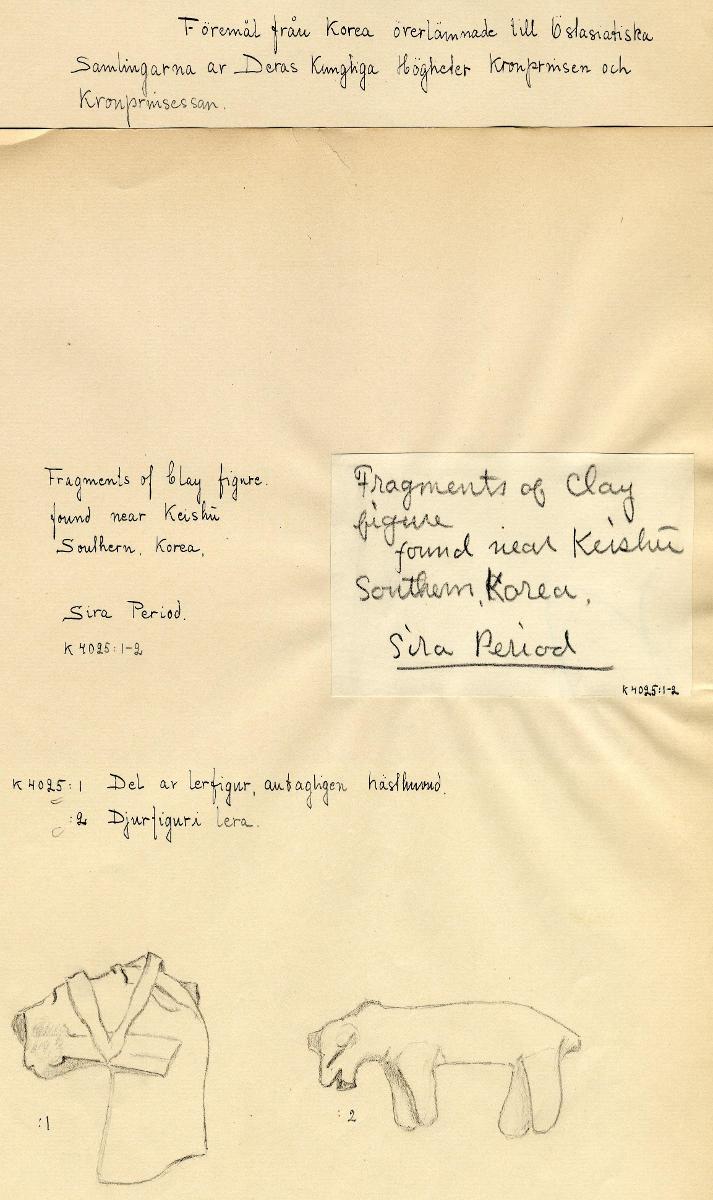 Föremål från Korea överlämnade till Östasiatiska
Samlingarna av Deras Kungliga Högheter Kronprinsen och
Kronprinsessan.
Fragments of Clay figure.
found near Keishū
Southern, Korea,
Sira Period.
K 4025:1-2
Fragments of Clay
figure
found near Keishū
Southern, Korea,
Sira Period
K 4025:1-2
K 4025:1 Del av lerfigur, antagligen hästhuvud.
:2 Djurfigur i lera.
:1
:2